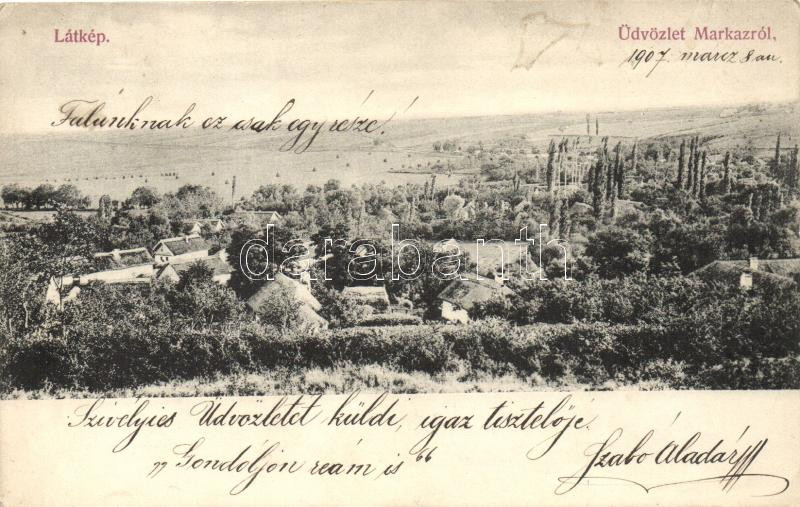 Látkép.
Üdvözlet Markazról,
1907. marcz 8 án
Falunknak ez csak egy része!
darabanth
Szivélyes Üdvözletet küldi, igaz tisztelője.
"Gondoljon reám is"
Szabó Aladár